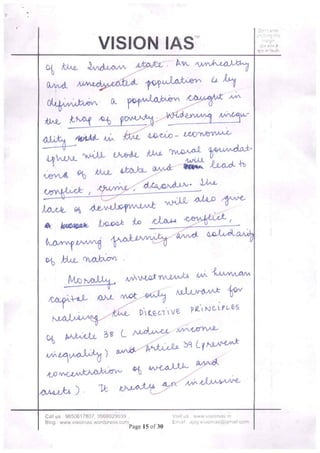 VISION IAS™
of the Indian state. An unhealthy
and uneducated population is by
definition a population caught in
the trap of poverty. Widening inequ-
ality in the socio-economic
sphere will erode the moral foundat-
ions of the state and will lead to
conflict, crime, disorder. The
lack of development will also give
a boost to class conflict,
hampering fraternity and solidarity
of the nation.
Morally, investments in human
capital are not only relevant for
realising the DIRECTIVE PRINCIPLES
of Article 38 (reduce income
inequality) and Article 39 (prevent
concentration of wealth and
assets). It creates an inclusive
Call us : 9650617807, 9968029039 Visit us : www.visionias.in
Blog : www.visionias.wordpress.com Email : ajay.visionias@gmail.com
Page 15 of 30